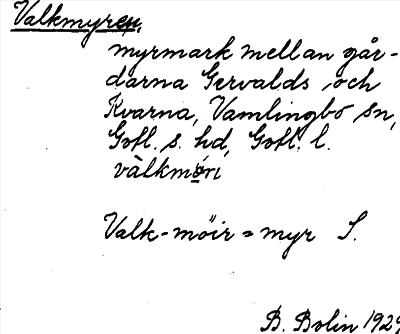 Valkmyren,
myrmark mellan går-
darna Gervalds och
Kvarna, Vamlingbo sn,
Gotl. s. hd, Gotl. l.
vàlkmöri
Valk-möir = myr S.
B. Bolin 1929